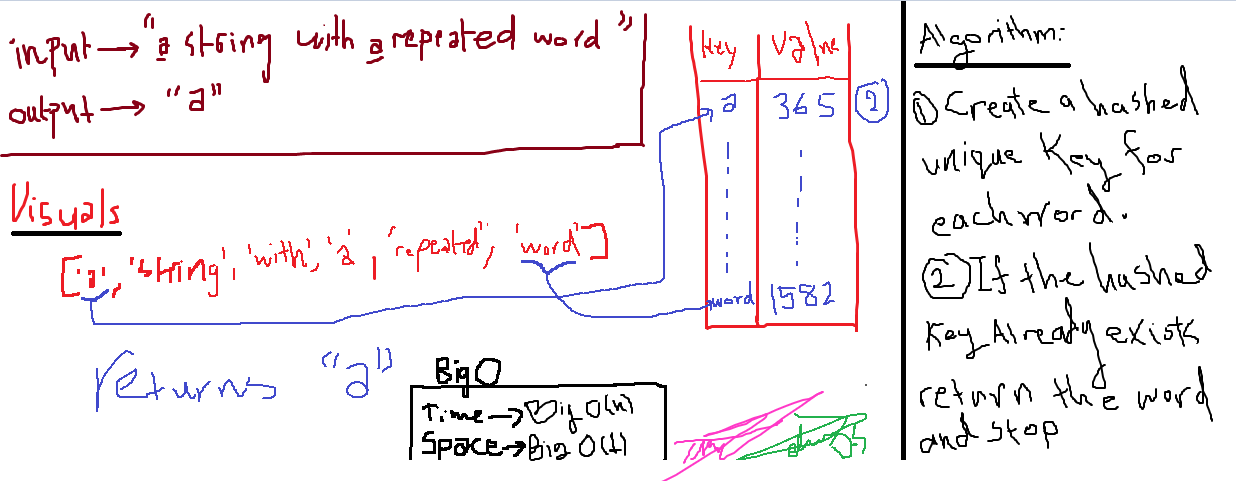 input → "a string with a repeated word"
output → "a"
Visuals
['a', 'string', 'with', 'a', 'repeated', 'word']
returns "a"
Key Value
a 365 2
word 1582
Big O
Time → Big O(n)
Space → Big O(1)
Algorithm:
① Create a hashed
unique Key for
each word.
② If the hashed
Key Already exists
return the word
and stop